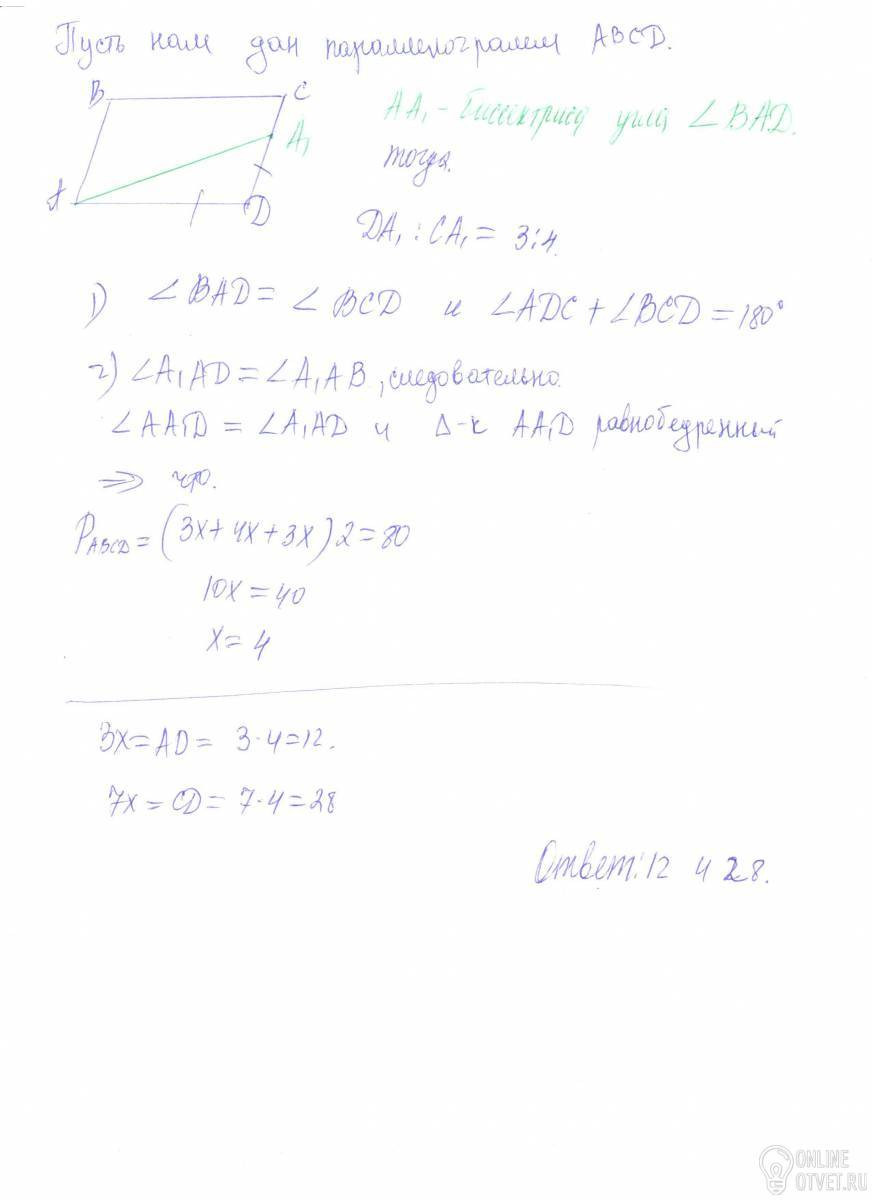 Пусть нам дан параллелограмм ABCD.
B
C
A
D
A₁
AA₁ - биссектриса угла ∠BAD.
тогда.
DA₁ : CA₁ = 3:4.
1) ∠BAD = ∠BCD и ∠ADC + ∠BCD = 180°
2) ∠A₁AD = ∠A₁AB, следовательно.
∠AA₁D = ∠A₁AD и Δ-к AA₁D равнобедренный
=> что.
P ABCD = (3x + 4x + 3x) 2 = 80
10x = 40
x = 4
3x = AD = 3·4 = 12.
7x = CD = 7·4 = 28
Ответ: 12 и 28.
ONLINE
OTVET.RU